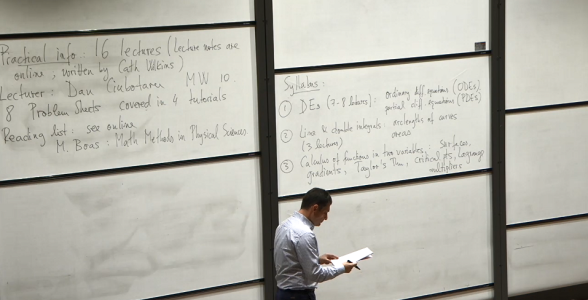 Practical info: 16 lectures (lecture notes are
online, written by Cath Wilkins)
Lecturer: Dan Ciubotaru MW 10.
8 Problem Sheets covered in 4 tutorials
Reading list: see online
M. Boas: Math Methods in Physical Sciences
Syllabus:
① DEs (7-8 lectures): ordinary diff equations (ODEs)
partial diff equations (PDEs)
② Line & double integrals: arclengths of curves
(3 lectures) areas
③ Calculus of functions in two variables: surfaces,
gradients, Taylor's Thm, critical pts, Lagrange
multipliers